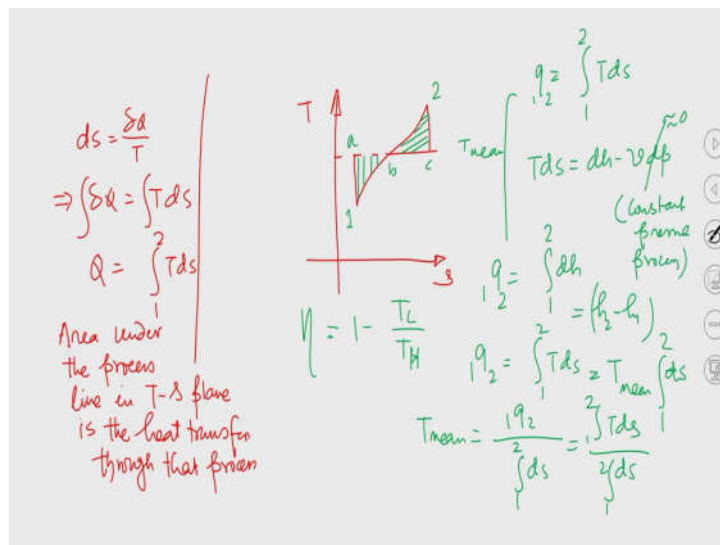 ds = δQ/T
⇒ ∫δQ = ∫Tds
Q = ∫₁² Tds
Area under
the process
line in T-s plane
is the heat transfer
through that process
T
2
a
b
c
1
s
η = 1 - T_L/T_H
T mean
₁q₂ = ∫₁² Tds
Tds = dh - vdp ≈0
(Constant
pressure
process)
₁q₂ = ∫₁² dh
= (h₂-h₁)
₁q₂ = ∫₁² Tds = T mean ∫₁² ds
T mean = ₁q₂ / ∫₁² ds = ∫₁² Tds / ∫₁² ds